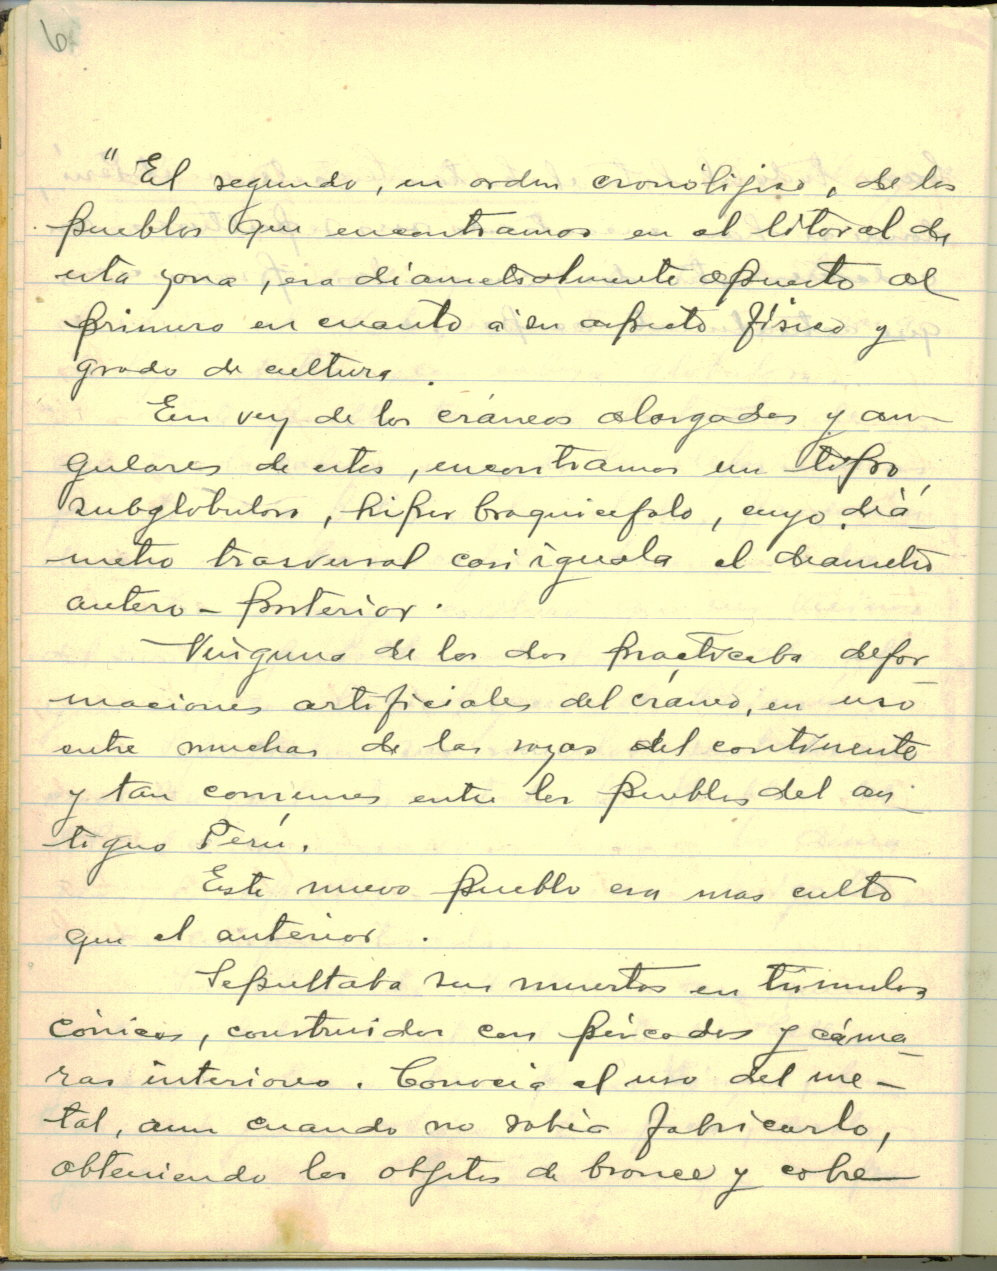 6
" El segundo, en orden cronológico, de los
pueblos que encontramos en el litoral de
esta zona, era diametralmente opuesto al
primero en cuanto a su aspecto físico y
grado de cultura.
En vez de los cráneos alargados y an-
gulares de estos, encontramos un tipo
subglobuloso, hiper braquicefalo, cuyo diá-
metro trasversal casi iguala el diametro
antero - posterior.
Ninguno de los dos practicaba defor-
maciones artificiales del cráneo, en uso
entre muchas de las razas del continente
y tan comunes entre los pueblos del an-
tiguo Perú.
Este nuevo pueblo era mas culto
que el anterior.
Sepultaba sus muertos en túmulos
cónicos, construidos con pircados y cáma-
ras interiores. Conocia el uso del me-
tal, aun cuando no sabia fabricarlo,
obteniendo los objetos de bronce y cobre